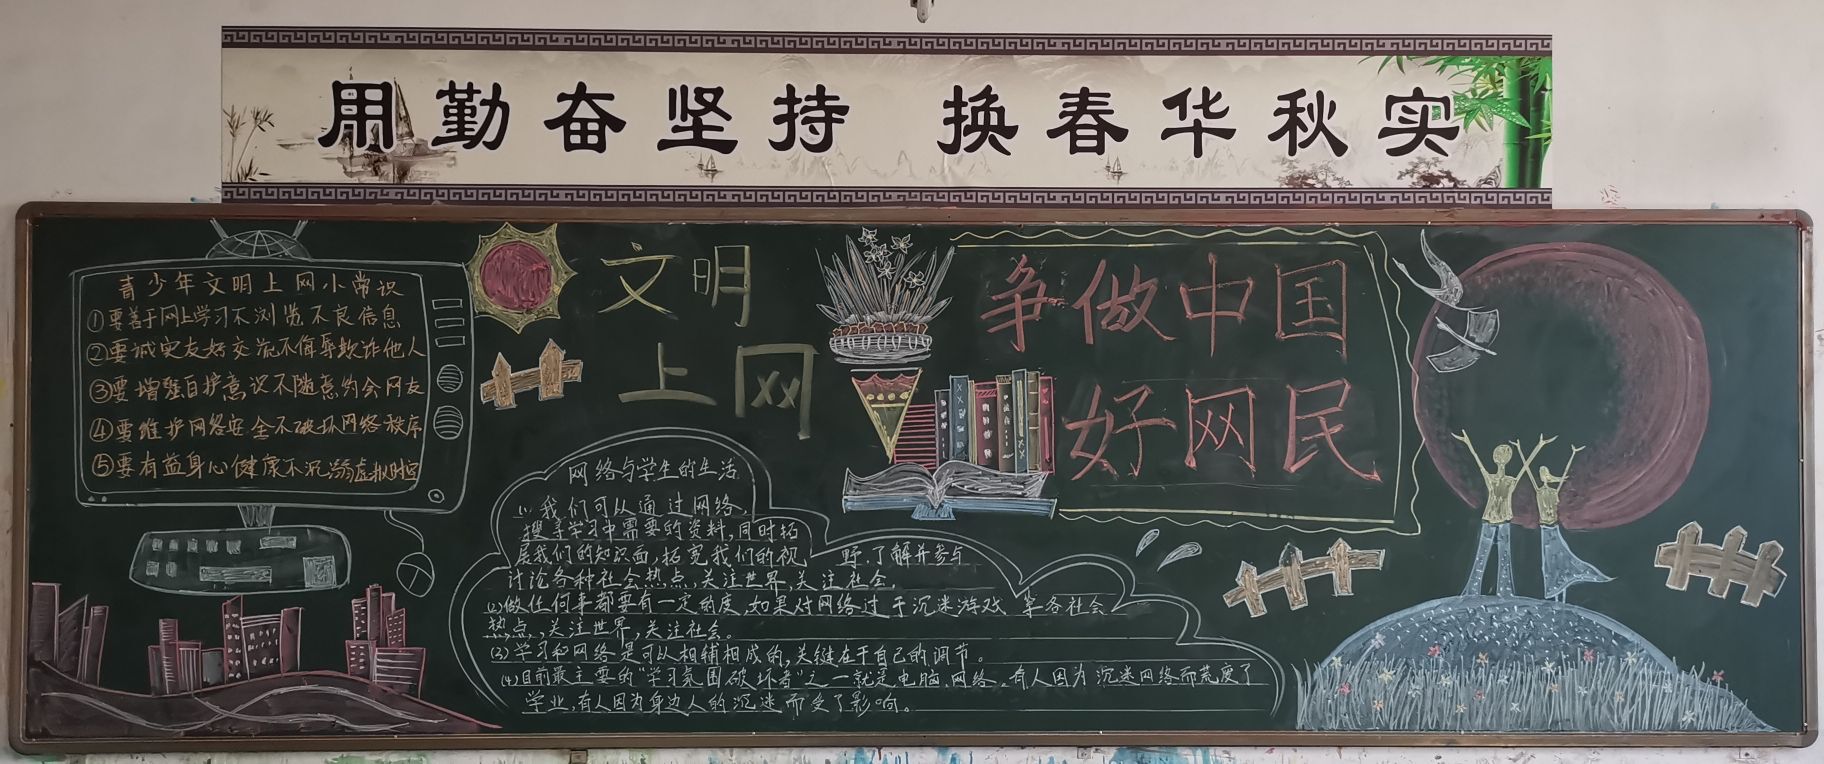 用勤奋坚持 换春华秋实
青少年文明上网小常识
①要善于网上学习不浏览不良信息
②要诚实友好交流不侮辱欺诈他人
③要增强自护意识不随意约会网友
④要维护网络安全不破坏网络秩序
⑤要有益身心健康不沉溺虚拟时空
文明
上网
争做中国
好网民
网络与学生的生活
(1)我们可以通过网络,
搜寻学习中需要的资料,同时拓
展我们的知识面,拓宽我们的视野,了解并参与
讨论各种社会热点,关注世界,关注社会,
(2)做任何事都要有一定的度,如果对网络过于沉迷游戏 等各社会
热点,,关注世界,关注社会。
(3)学习和网络是可以相辅相成的,关键在于自己的调节。
(4)目前最主要的"学习氛围破坏者"之一就是电脑、网络。有人因为沉迷网络而荒废了
学业,有人因为身边人的沉迷而受了影响。